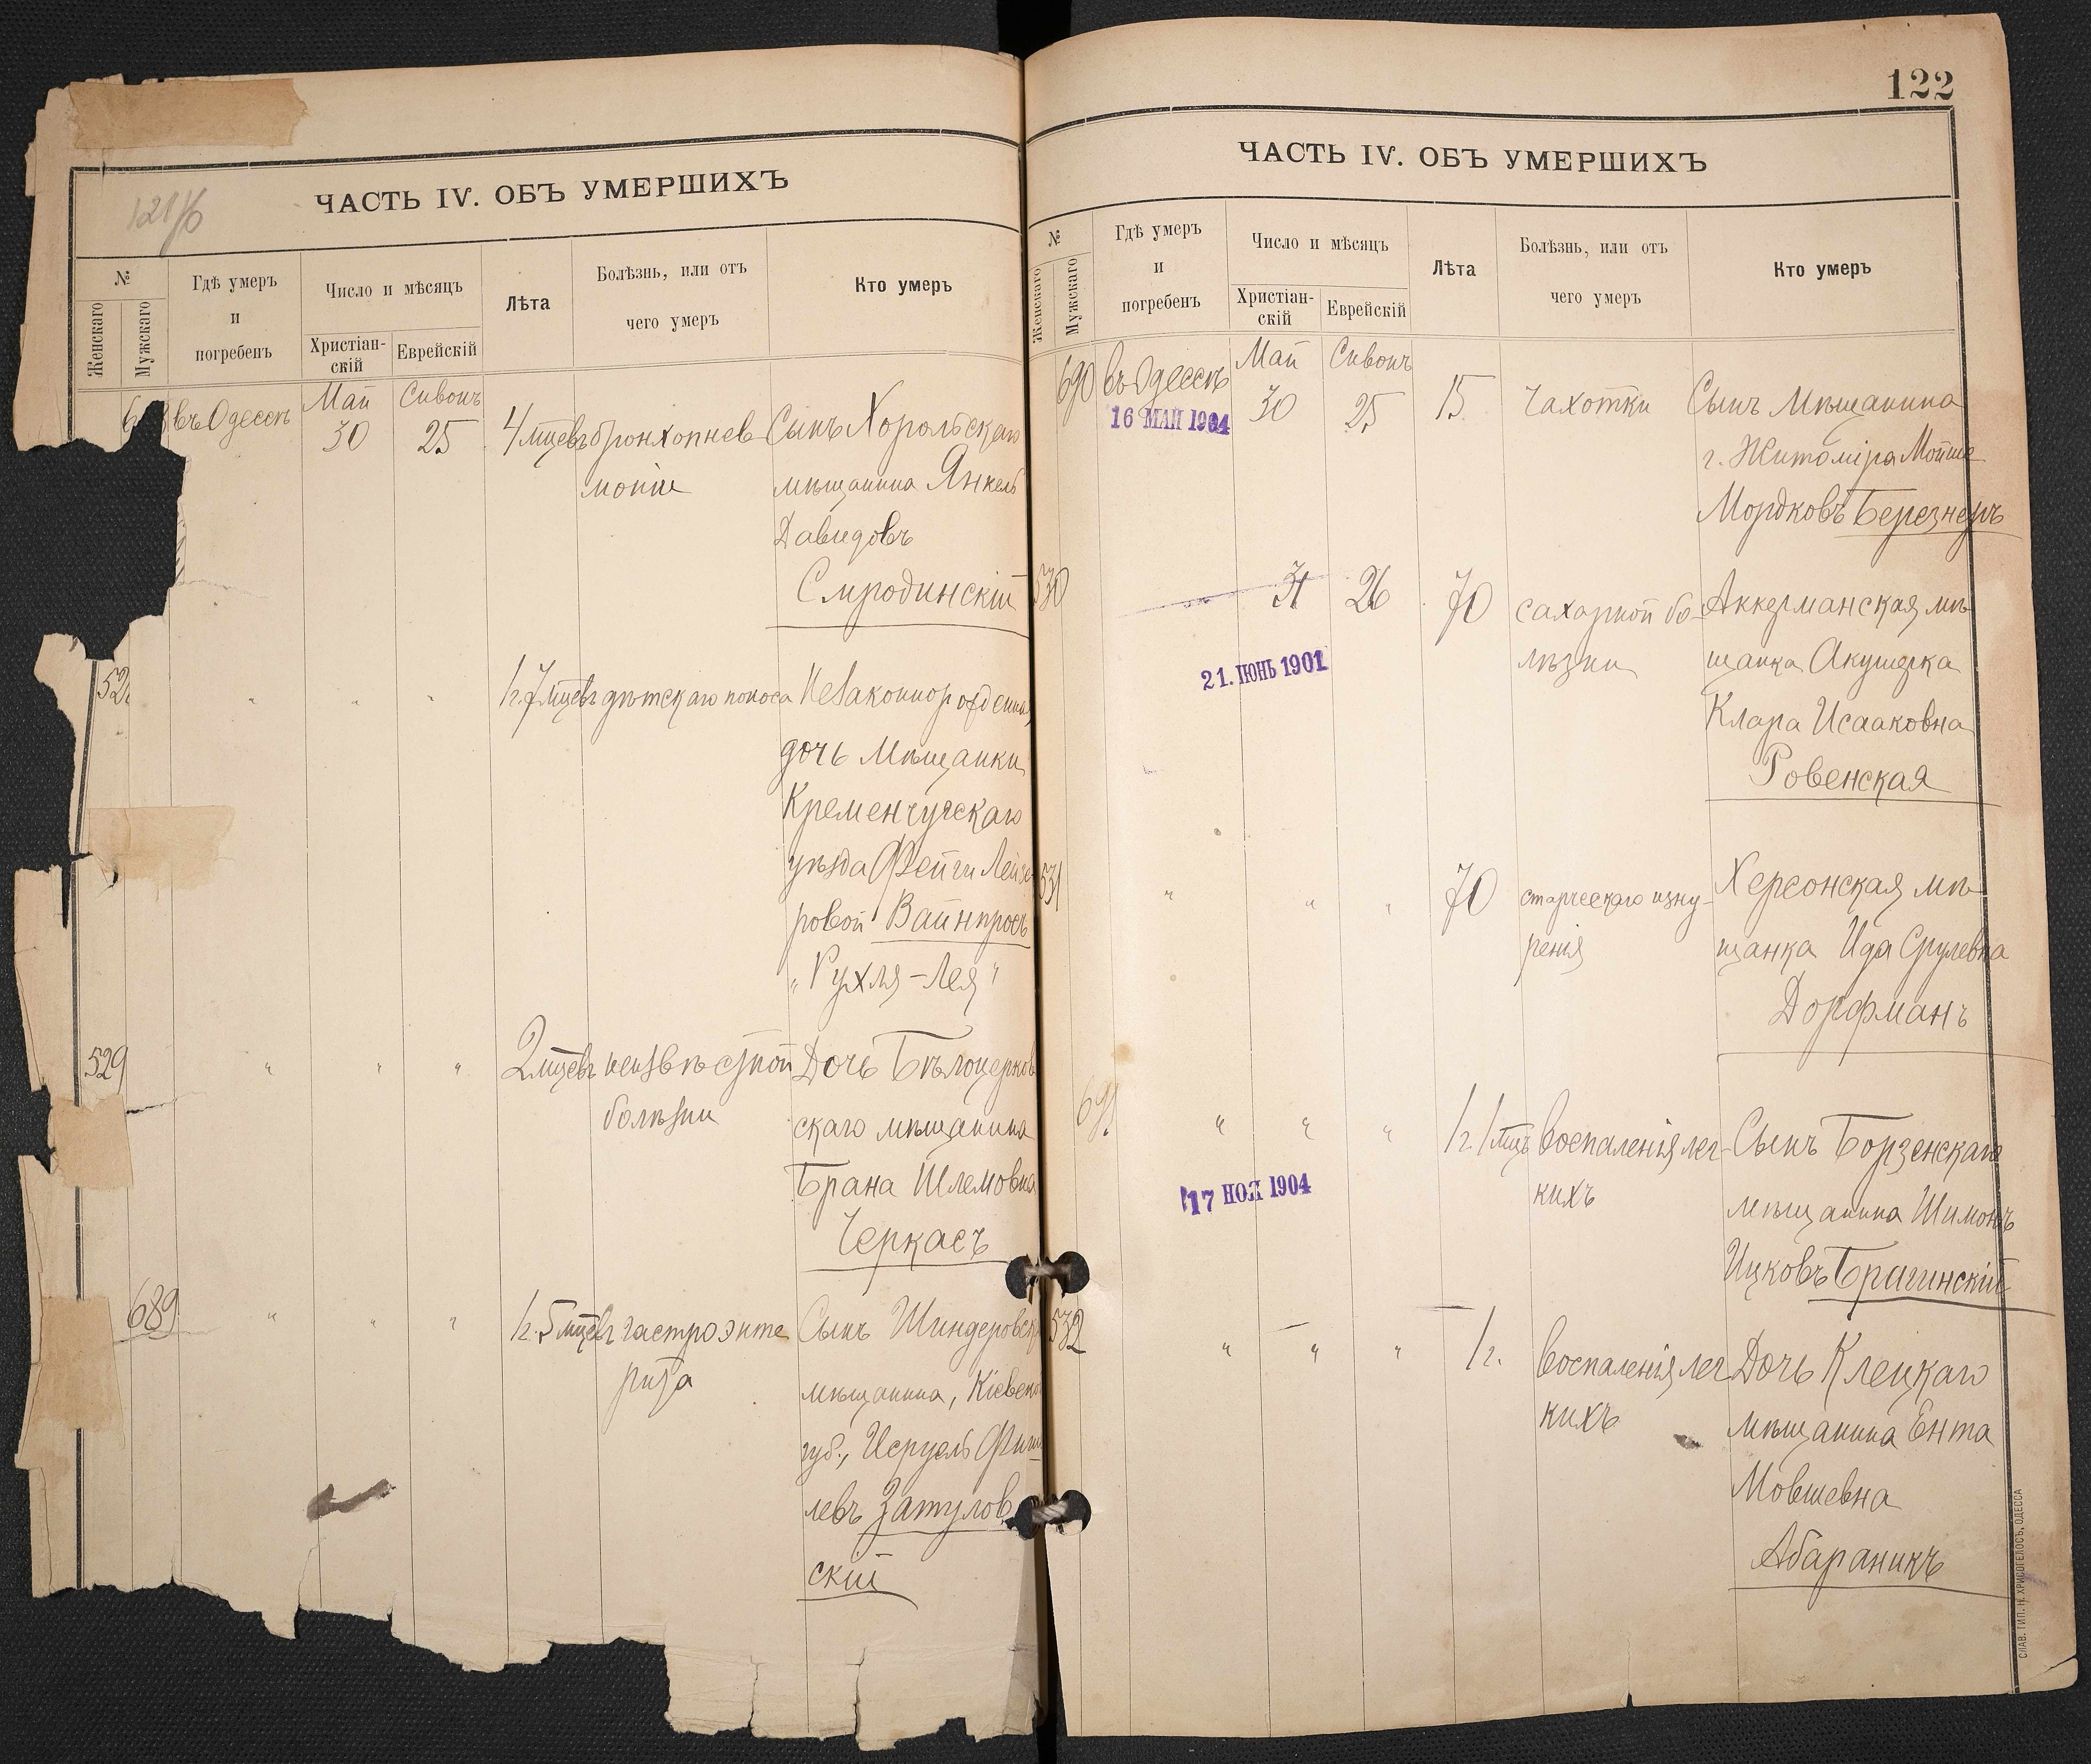 121/б
ЧАСТЬ IV. ОБЪ УМЕРШИХЪ
№
Женскаго
Мужскаго
Гдѣ умеръ
и
погребенъ
Число и мѣсяцъ
Христіан-
скій
Еврейскій
Лѣта
Болѣзнь, или отъ
чего умеръ
Кто умеръ
въ Одессѣ Май 30 Сивонъ 25 4 мцевъ бронхопнев Сынъ Хорольскаго
монiи мѣщанина Янкель
Давидовъ
Смродинскій
1 г. 7 мцевъ дѣтскаго поноса Незаконнорожденная
дочь мѣщанки
Кременчугскаго
уѣзда Фейги Лейзе-
ровой Вайнпросъ
„Рухля-Лея"
529 " " " 2 мцевъ неизвѣстной Дочь Бѣлоцерков
болѣзни скаго мѣщанина
Брана Шлемовна
Черкасъ
689 " " " 1 г. 5 мцевъ гастроэнте Сынъ Шндеровск
рита мѣщанина, Кіевск
губ., Исруель Фиш
левъ Затулов
скій
122
ЧАСТЬ IV. ОБЪ УМЕРШИХЪ
№
Женскаго
Мужскаго
Гдѣ умеръ
и
погребенъ
Число и мѣсяцъ
Христіан-
скій
Еврейскій
Лѣта
Болѣзнь, или отъ
чего умеръ
Кто умеръ
690 въ Одессѣ Май 30 Сивонъ 25 15 Чахотки Сынъ Мѣщанина
16 МАЙ 1904
г. Житоміра Мойше
Мордковъ Березнеръ
530 31 26 70 сахарной бо- Аккерманская мѣ-
лѣзни щанка Акушерка
21. ІЮНЬ 1901
Клара Исааковна
Ровенская
531 " " " 70 старческаго изну- Херсонская мѣ-
ренія щанка Ида Срулевна
Дорфманъ
691 " " " 1 г. 1 мцъ воспаленія лег- Сынъ Борзенскаго
кихъ мѣщанина Шимонъ
17 НОЯ 1904
Ицковъ Брагинскій
532 " " " 1 г. воспаленія лег Дочь Клецкаго
кихъ мѣщанина Ента
Мовшевна
Абараникъ
СЛАВ. ТИП. Н. ХРИСОГЕЛОСЪ, ОДЕССА